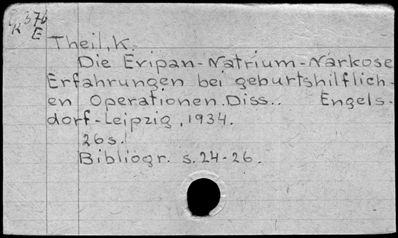 K 376
E
Theil, K.
Die Evipan-Natrium-Narkose
Erfahrungen bei geburtshilflich-
en Operationen. Diss.. Engels-
dorf-Leipzig, 1934.
26s.
Bibliogr. s. 24-26.